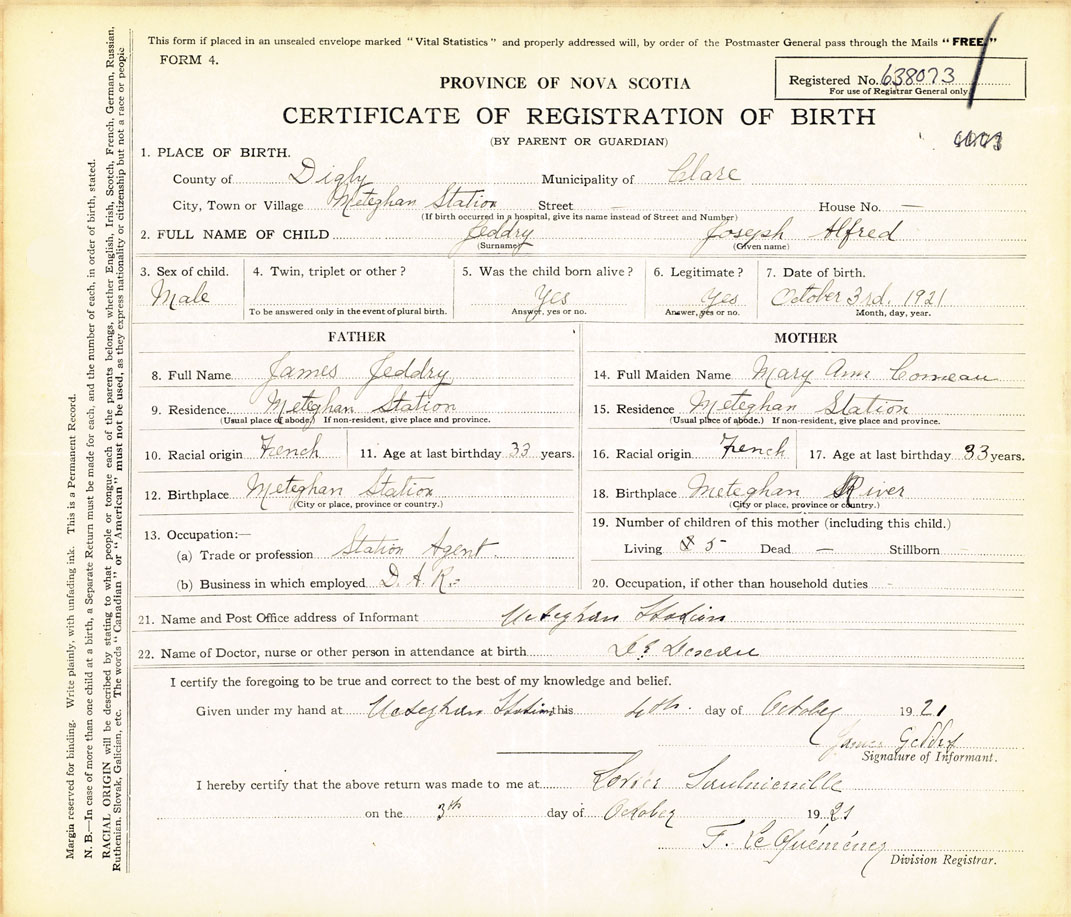 This form if placed in an unsealed envelope marked "Vital Statistics" and properly addressed will, by order of the Postmaster General pass through the Mails "FREE."
FORM 4.
Registered No. 638073
For use of Registrar General only
PROVINCE OF NOVA SCOTIA
CERTIFICATE OF REGISTRATION OF BIRTH
(BY PARENT OR GUARDIAN)
1. PLACE OF BIRTH.
County of Digby Municipality of Clare
City, Town or Village Meteghan Station Street House No. —
(If birth occurred in a hospital, give its name instead of Street and Number)
2. FULL NAME OF CHILD Jeddry Joseph Alfred
(Surname) (Given name)
3. Sex of child. 4. Twin, triplet or other? 5. Was the child born alive? 6. Legitimate? 7. Date of birth.
Male Yes Yes October 3rd. 1921
To be answered only in the event of plural birth. Answer, yes or no. Answer, yes or no. Month, day, year.
FATHER
8. Full Name James Jeddry
9. Residence. Meteghan Station
(Usual place of abode) If non-resident, give place and province.
10. Racial origin French 11. Age at last birthday 33 years.
12. Birthplace Meteghan Station
(City or place, province or country.)
13. Occupation:—
(a) Trade or profession Station Agent.
(b) Business in which employed D. A. R.
MOTHER
14. Full Maiden Name Mary Ann Comeau
15. Residence Meteghan Station
(Usual place of abode.) If non-resident, give place and province.
16. Racial origin French 17. Age at last birthday 33 years.
18. Birthplace Meteghan River
(City or place, province or country.)
19. Number of children of this mother (including this child.)
Living 5 Dead — Stillborn
20. Occupation, if other than household duties
21. Name and Post Office address of Informant Meteghan Station
22. Name of Doctor, nurse or other person in attendance at birth
I certify the foregoing to be true and correct to the best of my knowledge and belief.
Given under my hand at Meteghan Station this 4th. day of October 1921
James Jeddry
Signature of Informant.
I hereby certify that the above return was made to me at Saulnierville
on the 3th day of October 1921
F. LeQuéméner
Division Registrar.
Margin reserved for binding. Write plainly, with unfading ink. This is a Permanent Record.
N. B.—In case of more than one child at a birth, a Separate Return must be made for each, and the number of each, in order of birth, stated.
RACIAL ORIGIN will be described by stating to what people or tongue each of the parents belongs, whether English, Irish, Scotch, French, German, Russian,
Ruthenian, Slovak, Galician, etc. The words "Canadian" or "American" must not be used, as they express nationality or citizenship but not a race or people